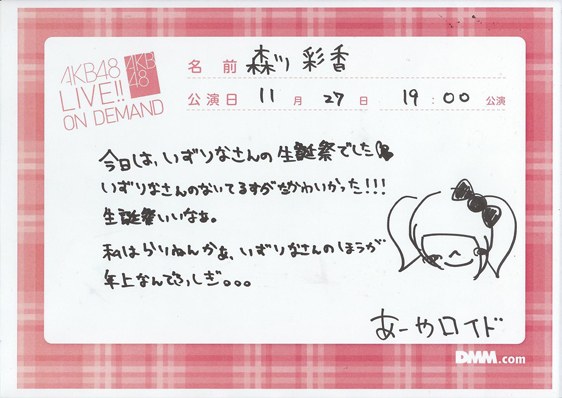 AKB48
LIVE!!
ON DEMAND
AKB
48
名前 森川 彩香
公演日 11月27日 19:00公演
今日は、いずりなさんの生誕祭でした
いずりなさんのないてるすがたかわいかった!!!
生誕祭いいなぁ。
私はらいねんかぁ、いずりなさんのほうが
年上なんてふしぎ。。。
あーやロイド
DMM.com